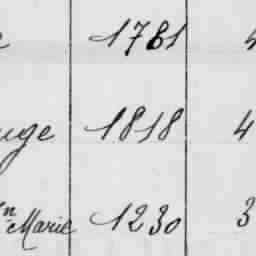 e 1781 4
uge 1818 4
n Marie 1230 3